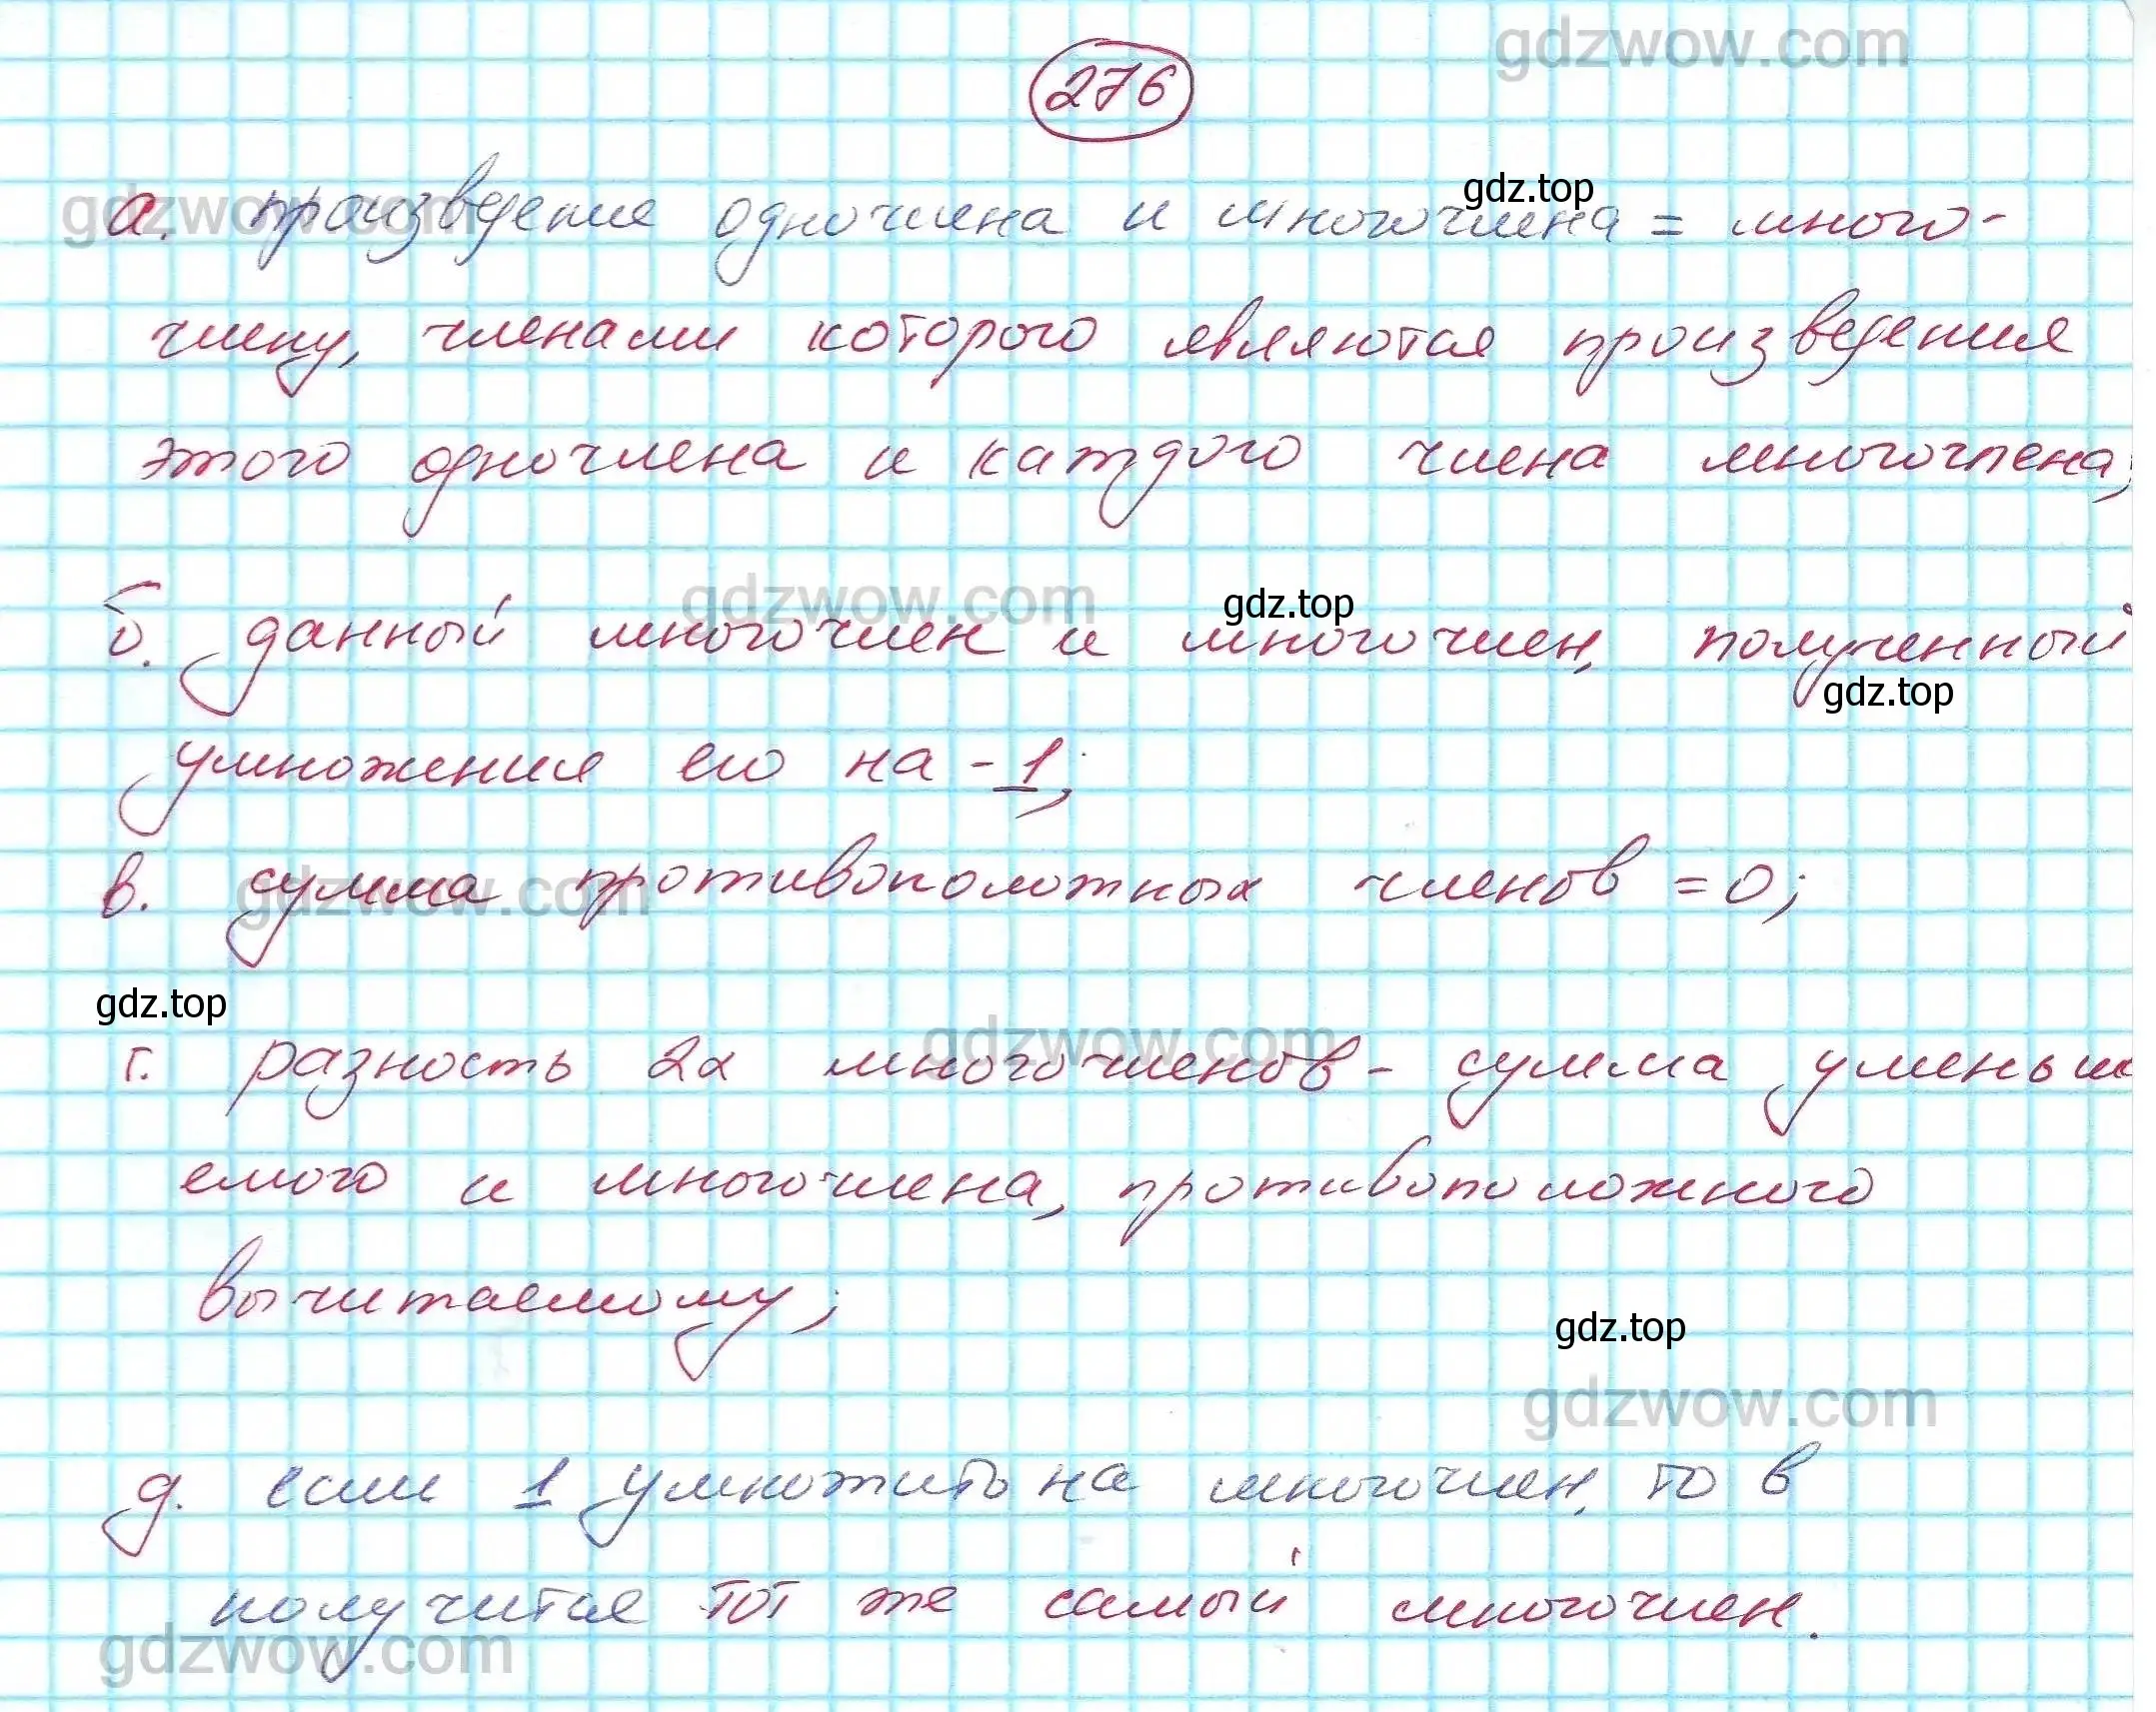 gdzwow.com
276
gdz.top
gdzwow.com
а. произведение одночлена и многочлена = много-
члену, членами которого являются произведения
этого одночлена и каждого члена многочлена;
gdzwow.com
gdz.top
б. данный многочлен и многочлен, полученный
gdz.top
умножения его на -1;
gdzwow.com
в. сумма противоположных членов = 0;
gdz.top
gdzwow.com
г. разность 2х многочленов - сумма уменьш
емого и многочлена, противоположного
вычитаемому;
gdz.top
gdzwow.com
д. если 1 умножить на многочлен, то в
получится тот же самый многочлен.
gdzwow.com